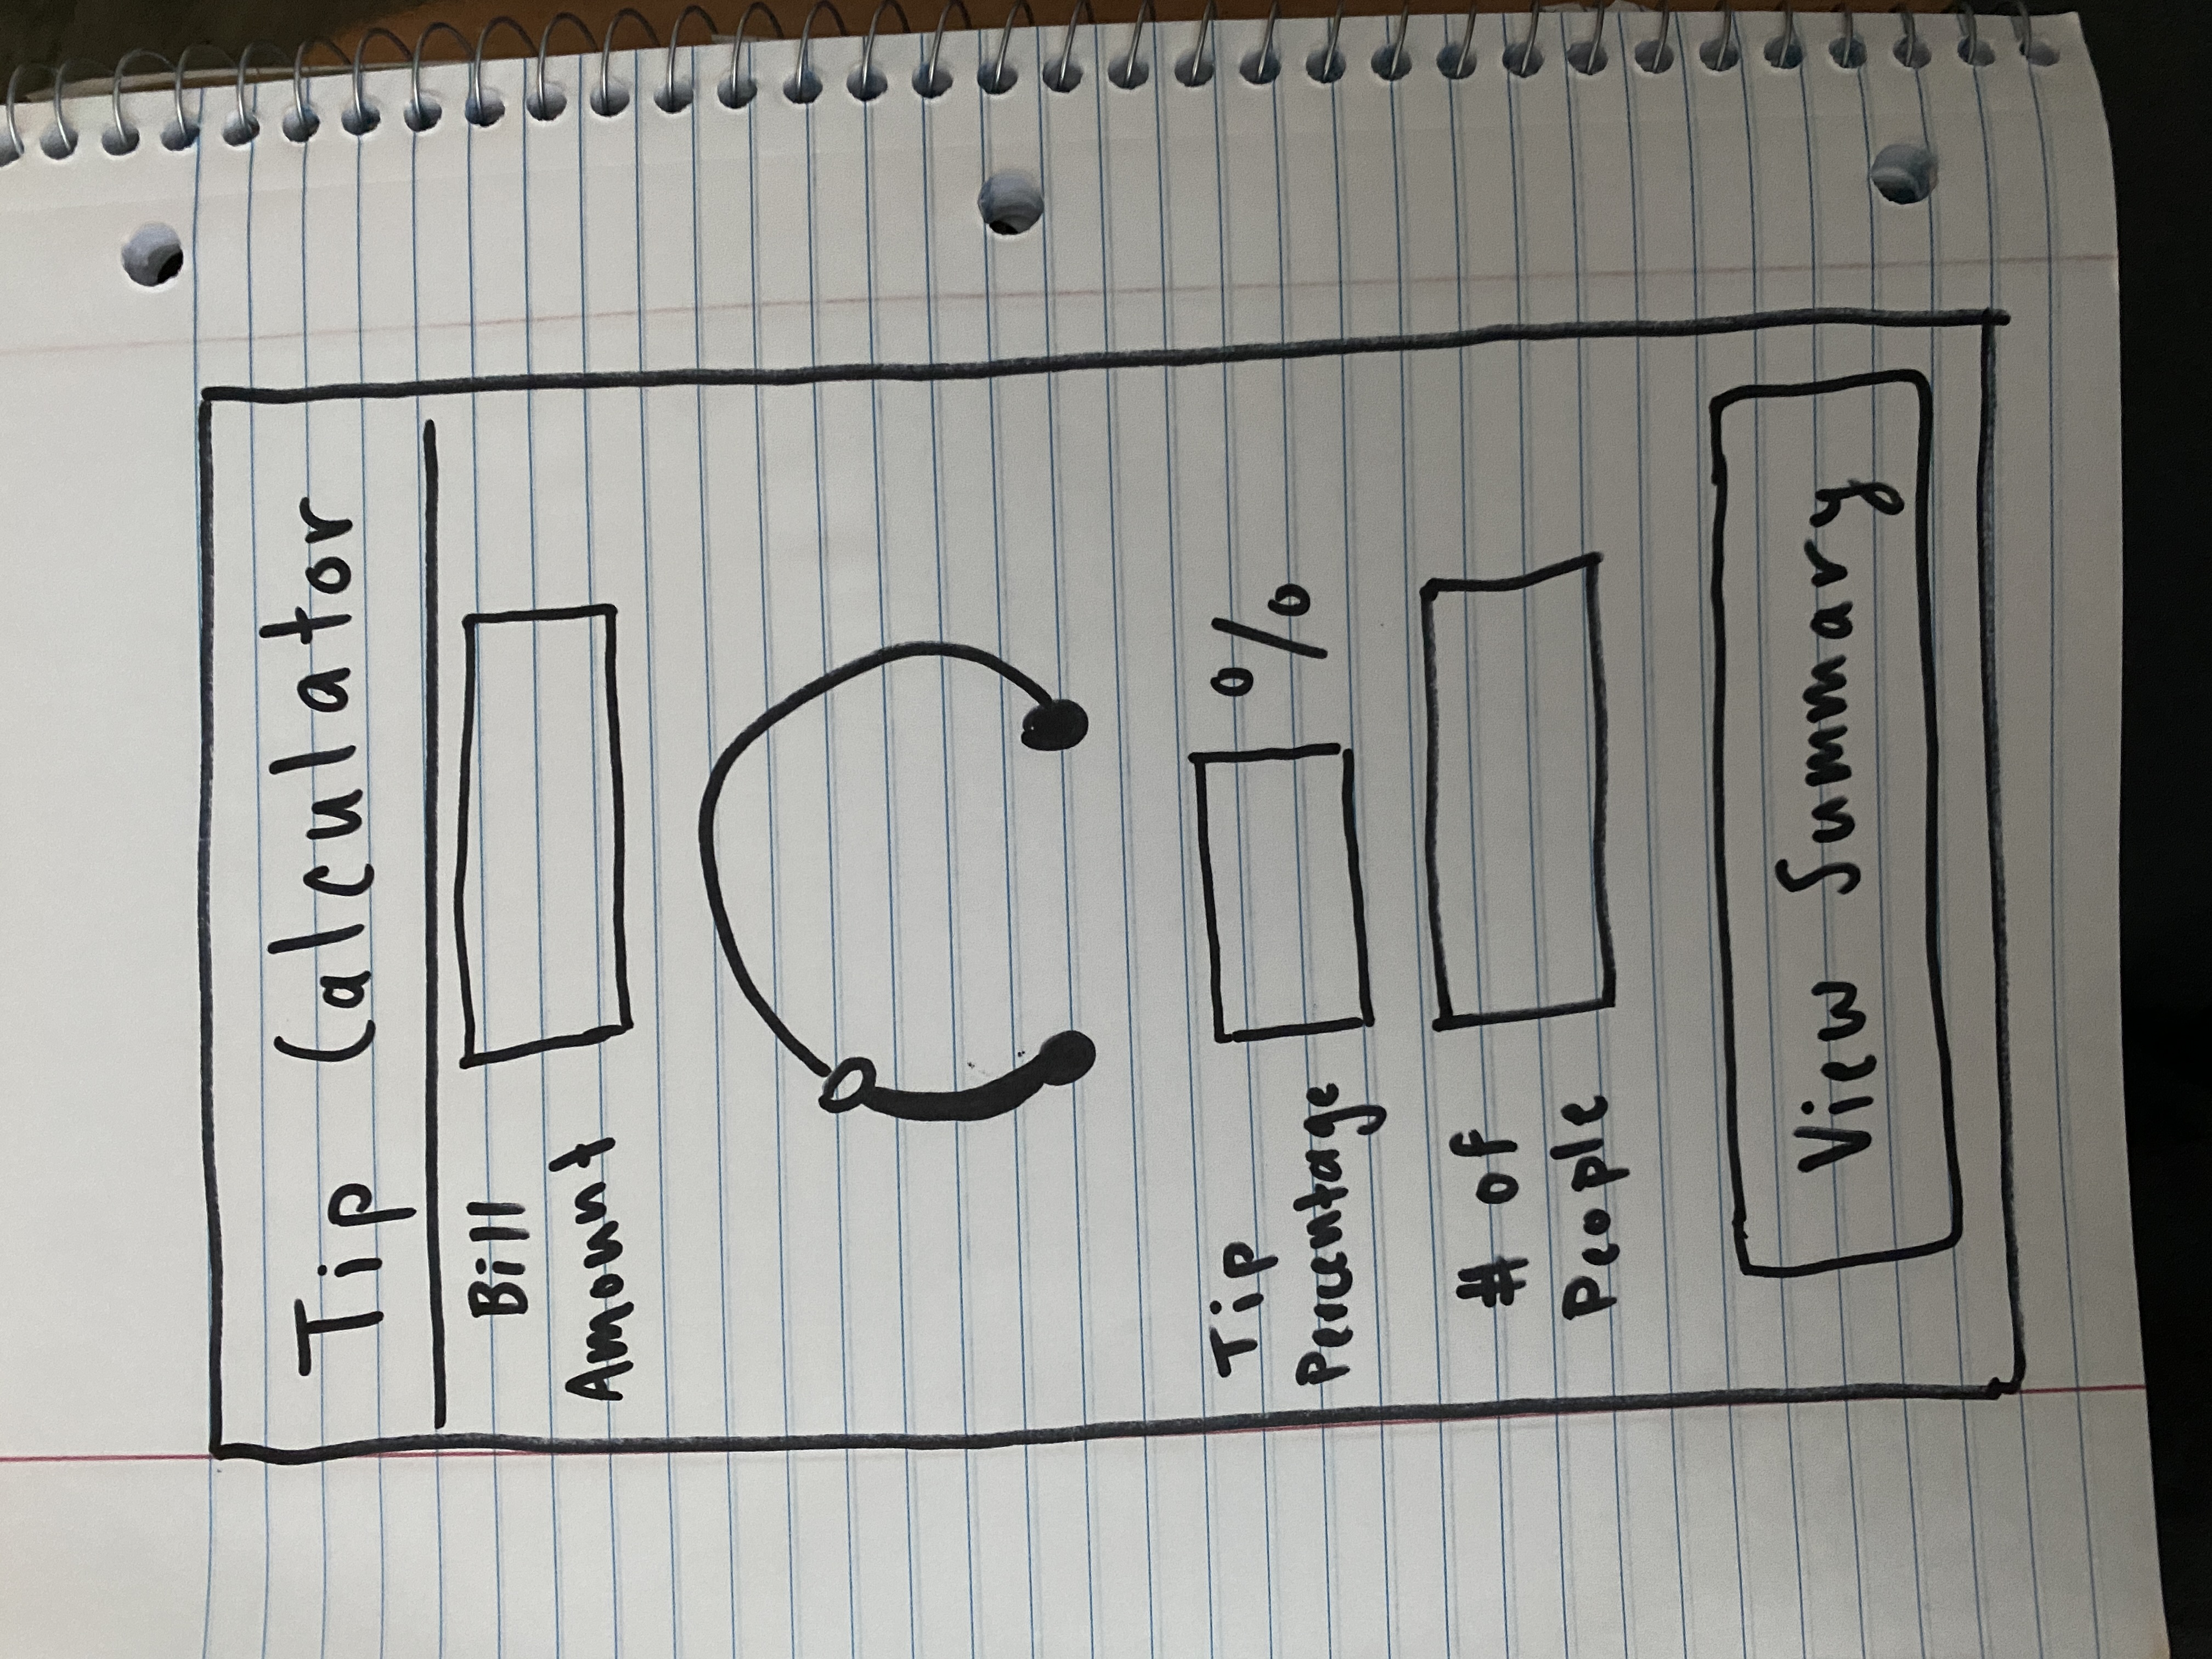 Tip Calculator
Bill
Amount
Tip
Percentage
%
# of
People
View Summary